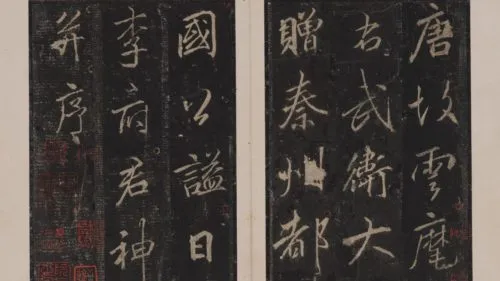 唐故雲麾
右武衛大
贈秦州都
國公謚曰
李府君神
并序